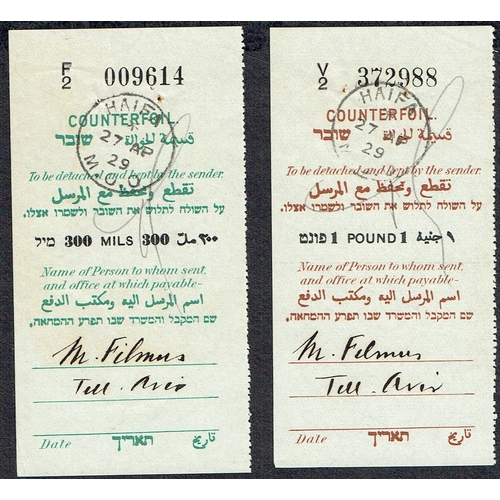 F/2 009614
COUNTERFOIL.
שובר قسيمة الحوالة
HAIFA
27 AP
29
M.O.O
To be detached and kept by the sender.
تقطع وتحفظ مع المرسل
על השולח לתלוש את השובר ולשמרו אצלו.
מיל 300 MILS 300 ٣٠٠ ملّ
Name of Person to whom sent,
and office at which payable-
اسم المرسل اليه ومكتب الدفع
שם המקבל והמשרד שבו תפרע ההמחאה.
M. Filmus
Tell. Avis
Date תאריך تاريخ
V/2 372988
COUNTERFOIL.
שובר قسيمة الحوالة
HAIFA
27 AP
29
To be detached and kept by the sender.
تقطع وتحفظ مع المرسل
על השולח לתלוש את השובר ולשמרו אצלו.
פונט 1 POUND 1 جنيه ١
Name of Person to whom sent,
and office at which payable-
اسم المرسل اليه ومكتب الدفع
שם המקבל והמשרד שבו תפרע ההמחאה.
M. Filmus
Tell. Aviv
Date תאריך تاريخ